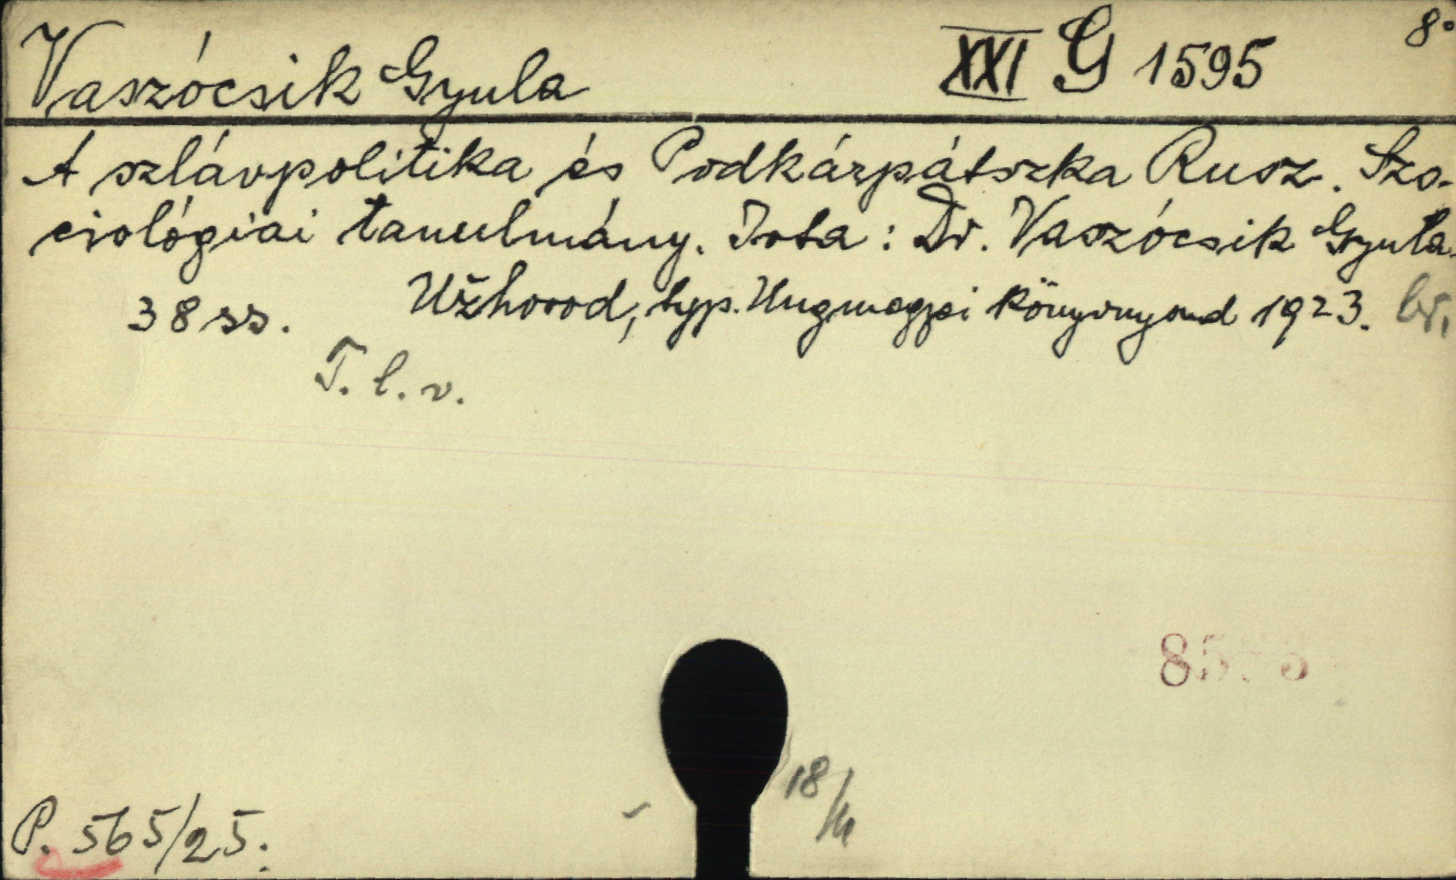 Vaszócsik Gyula XXI G 1595 8°
A szlávpolitika és Podkárpátszka Rusz. Szo-
ciológiai tanulmány. Irta: Dr. Vaszócsik Gyula.
38 ss. Užhorod, typ. Ungmegyei könyvnyomd 1923. br.
T. l. v.
P. 565/25.
18/III